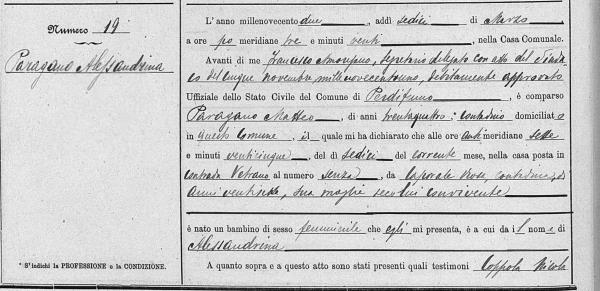 Numero 19
Paragano Alessandrina
* S'indichi la PROFESSIONE o la CONDIZIONE.
L'anno millenovecento due, addì sedici di Marzo
a ore po meridiane tre e minuti venti, nella Casa Comunale.
Avanti di me Francesco Amoruso, Segretario delegato con atto del Sinda
co del cinque novembre millenovecentouno, debitamente approvato
Uffiziale dello Stato Civile del Comune di Perdifumo, è comparso
Paragano Matteo, di anni trentaquattro, contadino domiciliato
in questo Comune, il quale mi ha dichiarato che alle ore anti meridiane sette
e minuti venticinque, del dì sedici del corrente mese, nella casa posta in
contrada Vetrano al numero senza, da Caporale Rosa, contadina, di
anni ventisette, sua moglie seco lui convivente
è nato un bambino di sesso femminile che egli mi presenta, e a cui dà il nome di
Alessandrina
A quanto sopra e a questo atto sono stati presenti quali testimoni Coppola Nicola